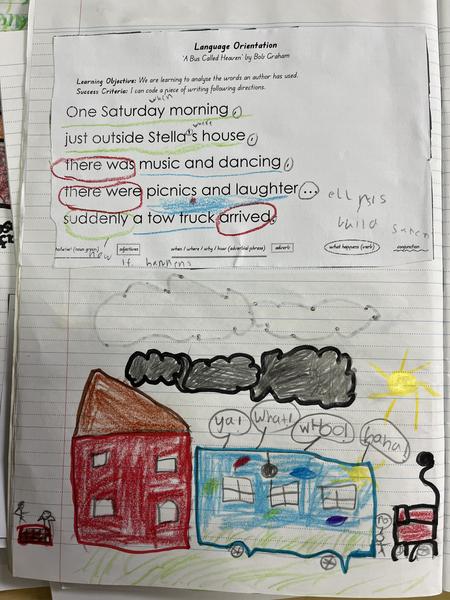 Language Orientation
'A Bus Called Heaven' by Bob Graham
Learning Objective: We are learning to analyse the words an author has used.
Success Criteria: I can code a piece of writing following directions.
when
One Saturday morning,
where
just outside Stella's house,
there was music and dancing,
there were picnics and laughter...
ellipsis
build
suddenly a tow truck arrived.
who/what (noun group) adjectives when / where / why / how (adverbial phrase) adverb what happens (verb) conjunction
how
it happens
ya!
what!
haha!